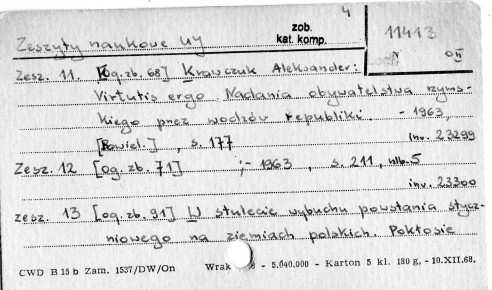 4
zob.
kat. komp.
11413
N OII
Zeszyty naukowe UJ
Zesz. 11. [Og. zb. 68] Krawczuk Aleksander:
Virtutis ergo. Nadania obywatelstwa rzyms-
kiego przez wodzów republiki. - 1963,
[Powiel.] , s. 177
inv. 23299
Zesz. 12 [og. zb. 71] ;- 1963 , s. 211, nlb. 5
inv. 23300
zesz. 13 [og. zb. 91] W stulecie wybuchu powstania stycz-
niowego na ziemiach polskich. Pokłosie
CWD B 15 b Zam. 1537/DW/On Wrak 8 - 5.040.000 - Karton 5 kl. 180 g, - 10.XII.68.